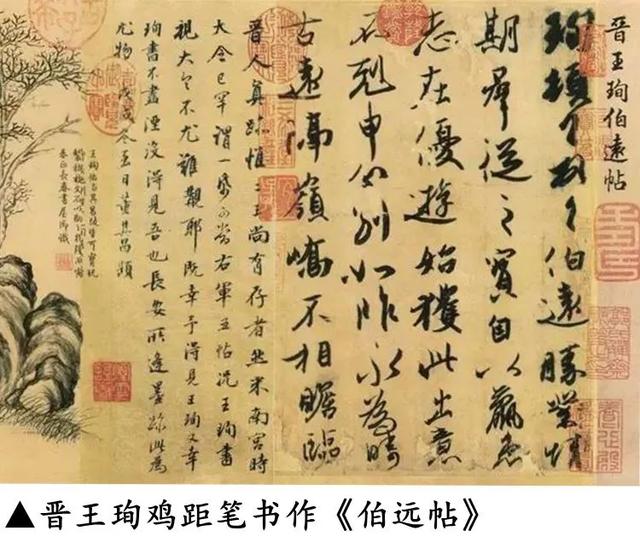 晉王珣伯遠帖
珣頓首頓首伯遠勝業情
期群從之寶自以羸患
志在優遊始獲此出意
不剋申分別如昨永為疇
古遠隔嶺嶠不相瞻臨
晉人真跡惟二王尚有存者然米南宮時
大令已罕謂一紙可當右軍五帖況王珣書
視大令不尤難覯耶既幸予得見王珣又幸
珣書不盡湮沒得見吾也長安所逢墨跡此為
尤物戊戌冬至日董其昌題
王珣帖與其昌跋皆可寶玩
春正長春書屋御識
▲晋王珣鸡距笔书作《伯远帖》